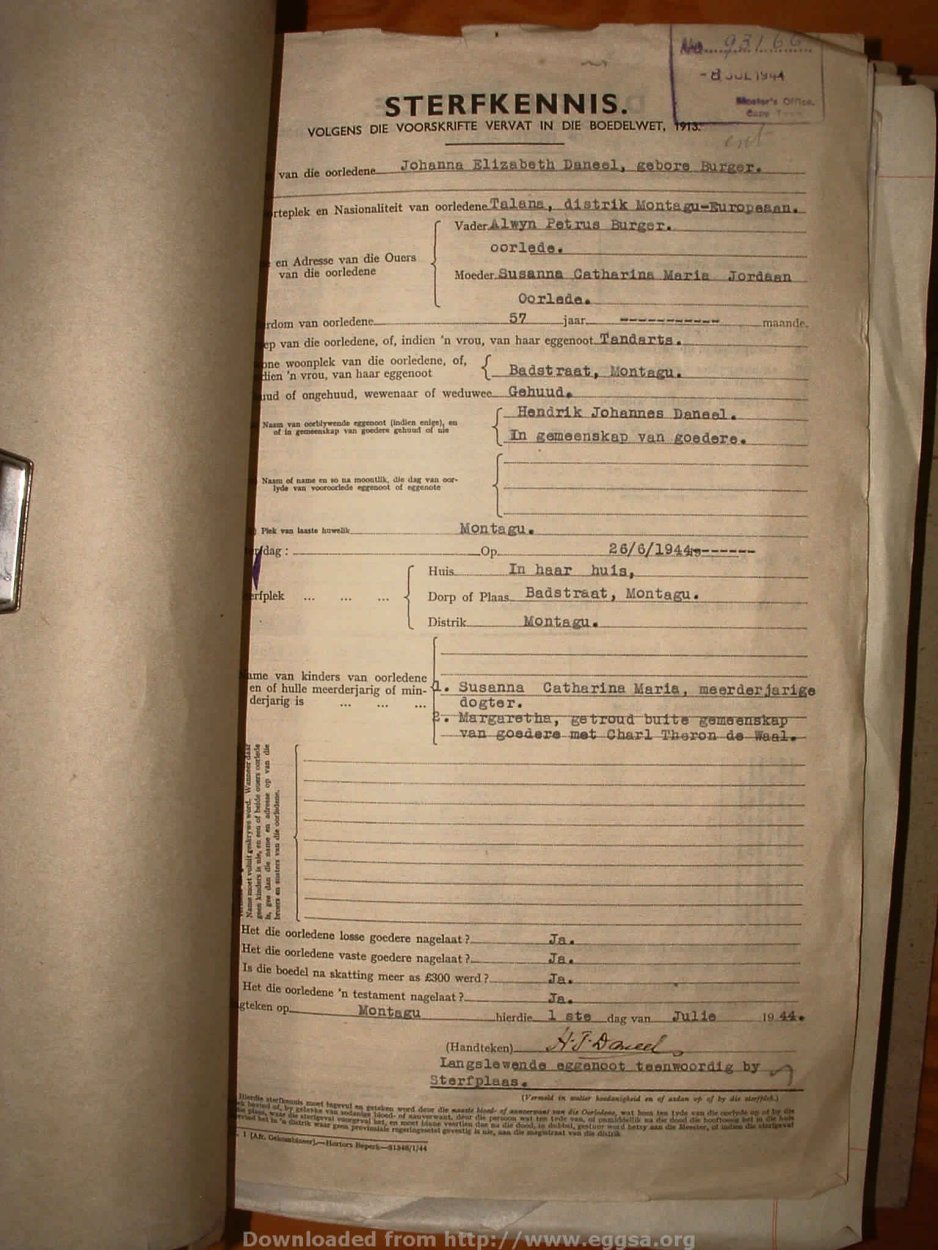 No. 93166
-8 JUL 1944
Master's Office,
Cape Town
STERFKENNIS.
VOLGENS DIE VOORSKRIFTE VERVAT IN DIE BOEDELWET, 1913.
van die oorledene Johanna Elizabeth Daneel, gebore Burger.
orteplek en Nasionaliteit van oorledene Talana, distrik Montagu-Europeaan.
Vader Alwyn Petrus Burger.
oorlede.
en Adresse van die Ouers
van die oorledene
Moeder Susanna Catharina Maria Jordaan
Oorlede.
rdom van oorledene 57 jaar ----------- maande.
ep van die oorledene, of, indien 'n vrou, van haar eggenoot Tandarts.
one woonplek van die oorledene, of,
dien 'n vrou, van haar eggenoot
Badstraat, Montagu.
uud of ongehuud, wewenaar of weduwee Gehuud.
Naam van oorblywende eggenoot (indien enige), en
of in gemeenskap van goedere gehuud of nie
Hendrik Johannes Daneel.
In gemeenskap van goedere.
Naam of name en so na moontlik, die dag van oor-
lyde van vooroorlede eggenoot of eggenote
Plek van laaste huwelik Montagu.
dag : Op 26/6/1944 ------
Huis In haar huis,
erfplek ... ... ... Dorp of Plaas Badstraat, Montagu.
Distrik Montagu.
ame van kinders van oorledene
en of hulle meerderjarig of min-
derjarig is ... ... ...
1. Susanna Catharina Maria, meerderjarige
dogter.
2. Margaretha, getroud buite gemeenskap
van goedere met Charl Theron de Waal.
Name moet voluit geskrywe word. Wanneer daar
geen kinders is nie, en een of beide ouers oorlede
is, gee dan die name en adresse op van die
broers en susters van die oorledene.
Het die oorledene losse goedere nagelaat ? Ja.
Het die oorledene vaste goedere nagelaat ? Ja.
Is die boedel na skatting meer as £300 werd ? Ja.
Het die oorledene 'n testament nagelaat ? Ja.
gteken op Montagu hierdie 1 ste dag van Julie 19 44.
(Handteken) H.J. Daneel
Langslewende eggenoot teenwoordig by
Sterfplaas.
(Vermeld in watter hoedanigheid en of andan op of by die sterfplek.)
Hierdie sterfkennis moet ingevul en geteken word deur die naaste bloed- of aanverwant van die Oorledene, wat
1 [Afr. Gekombineer].—Hortors Beperk—81348/1/44
Downloaded from http://www.eggsa.org